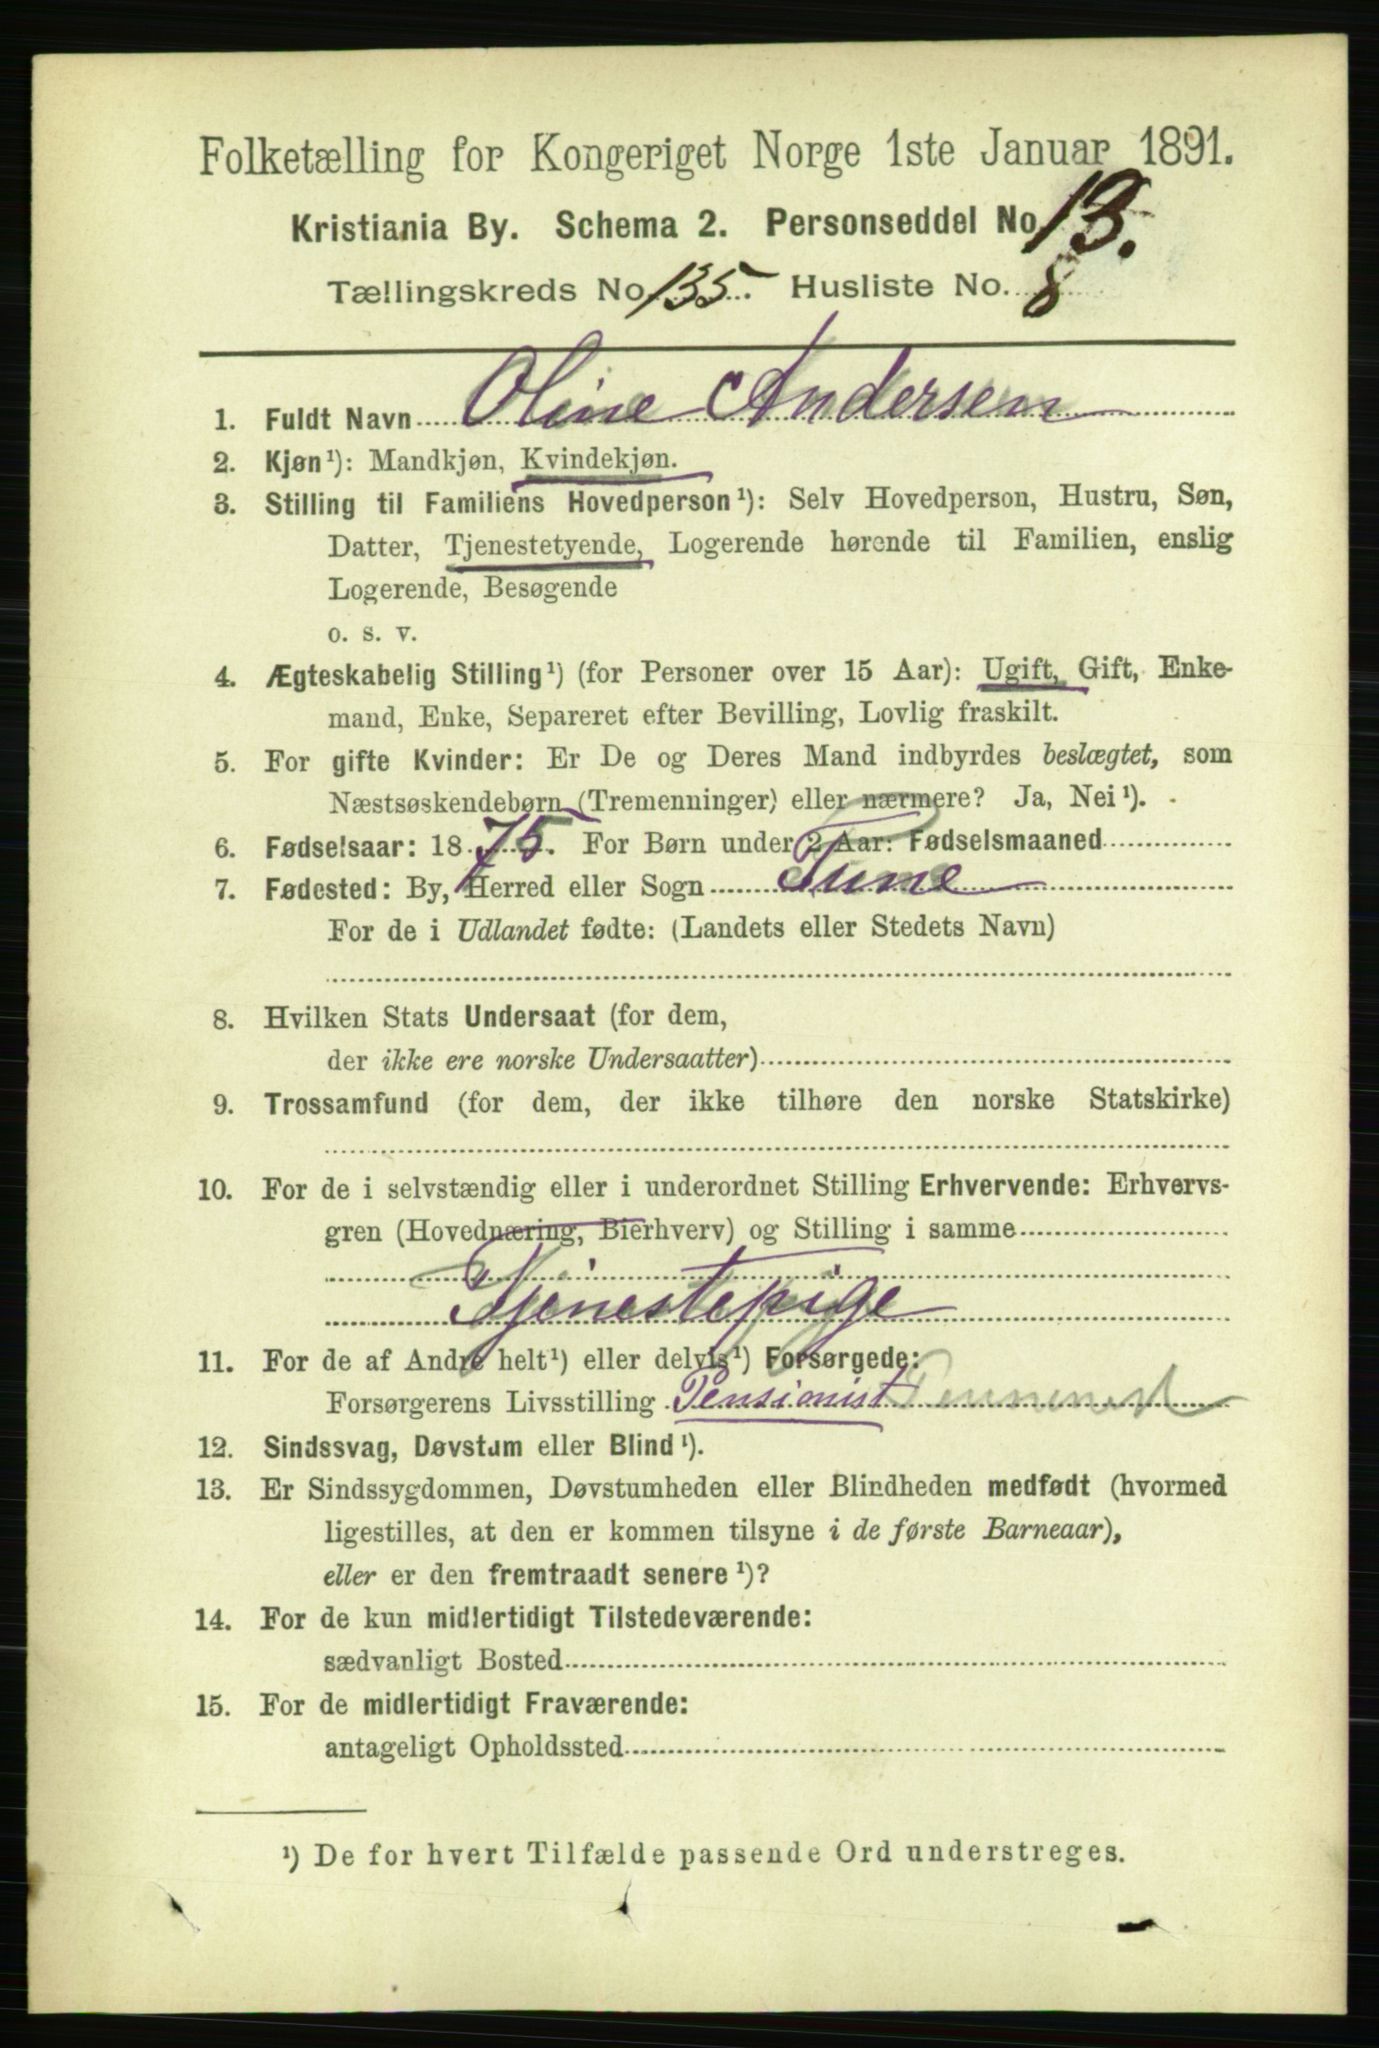 Folketælling for Kongeriget Norge 1ste Januar 1891.
Kristiania By. Schema 2. Personseddel No 13.
Tællingskreds No 135. Husliste No. 8
1. Fuldt Navn Oline Andersen
2. Kjøn¹): Mandkjøn, Kvindekjøn.
3. Stilling til Familiens Hovedperson¹): Selv Hovedperson, Hustru, Søn,
Datter, Tjenestetyende, Logerende hørende til Familien, enslig
Logerende, Besøgende
o. s. v.
4. Ægteskabelig Stilling¹) (for Personer over 15 Aar): Ugift, Gift, Enke-
mand, Enke, Separeret efter Bevilling, Lovlig fraskilt.
5. For gifte Kvinder: Er De og Deres Mand indbyrdes beslægtet, som
Næstsøskendebørn (Tremenninger) eller nærmere? Ja, Nei¹).
6. Fødselsaar: 1875. For Børn under 2 Aar: Fødselsmaaned
7. Fødested: By, Herred eller Sogn Tune
For de i Udlandet fødte: (Landets eller Stedets Navn)
8. Hvilken Stats Undersaat (for dem,
der ikke ere norske Undersaatter)
9. Trossamfund (for dem, der ikke tilhøre den norske Statskirke)
10. For de i selvstændig eller i underordnet Stilling Erhvervende: Erhvervs-
gren (Hovednæring, Bierhverv) og Stilling i samme
Tjenestepige
11. For de af Andre helt¹) eller delvis¹) Forsørgede:
Forsørgerens Livsstilling Pensionist
12. Sindssvag, Døvstum eller Blind¹).
13. Er Sindssygdommen, Døvstumheden eller Blindheden medfødt (hvormed
ligestilles, at den er kommen tilsyne i de første Barneaar),
eller er den fremtraadt senere¹)?
14. For de kun midlertidigt Tilstedeværende:
sædvanligt Bosted
15. For de midlertidigt Fraværende:
antageligt Opholdssted
¹) De for hvert Tilfælde passende Ord understreges.